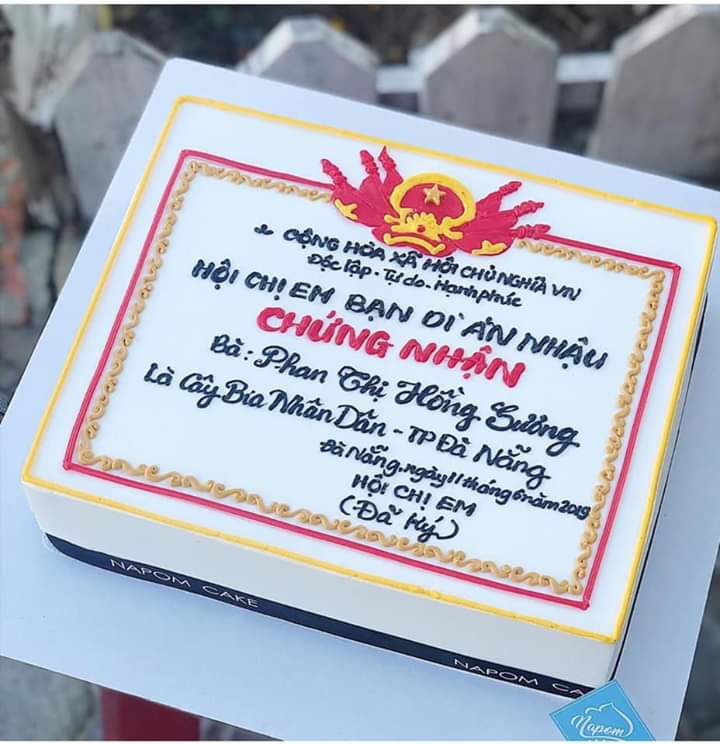 CỘNG HÒA XÃ HỘI CHỦ NGHĨA VN
Độc lập - Tự do - Hạnh phúc
HỘI CHỊ EM BẠN DÌ ĂN NHẬU
CHỨNG NHẬN
Bà: Phan Thị Hồng Sương
Là Cây Bia Nhân Dân - TP Đà Nẵng
Đà Nẵng, ngày 11 tháng 6 năm 2019
HỘI CHỊ EM
(Đã Ký)
NAPOM CAKE
NAPOM CA
Napom